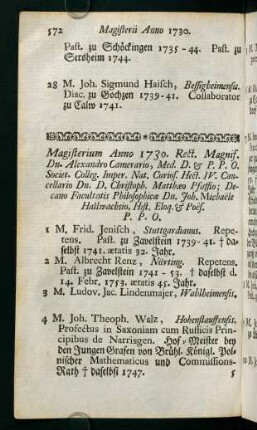 572 Magisterii Anno 1730.
Past. zu Schöckingen 1735 - 44. Past. zu
Sersheim 1744.
28 M. Joh. Sigmund Haisch, Besigheimensis.
Diac. zu Gochzen 1739-41. Collaborator
zu Calw 1741.
Magisterium Anno 1730. Rect. Magnif.
Dn. Alexandro Camerario, Med. D. & P. P. O.
Societ. Colleg. Imper. Nat. Curios. Hect. IV. Can-
cellario Dn. D. Christoph. Matthæo Pfaffio; De-
cano Facultatis Philosophicæ Dn. Joh. Michaële
Hallwachsio, Hist. Eloq. & Poës.
P. P. O.
1 M. Frid. Jenisch, Stuttgardianus. Repe-
tens. Past. zu Zavelstein 1739 - 41. † da-
selbst 1741. ætatis 32. Jahr.
2 M. Albrecht Renz, Nürting. Repetens.
Past. zu Zavelstein 1741 - 53. † daselbst d.
14. Febr. 1753. ætatis 45. Jahr.
3 M. Ludov. Jac. Lindenmajer, Wahlheimensis.
4 M. Joh. Theoph. Walz, Hohenstauffensis.
Profectus in Saxoniam cum Rufficis Prin-
cipibus de Narrisgen. Hof-Meister bey
den Jungen Grafen von Brühl. Königl. Pol-
nischer Mathematicus und Commissions-
Rath † daselbst 1747.
5